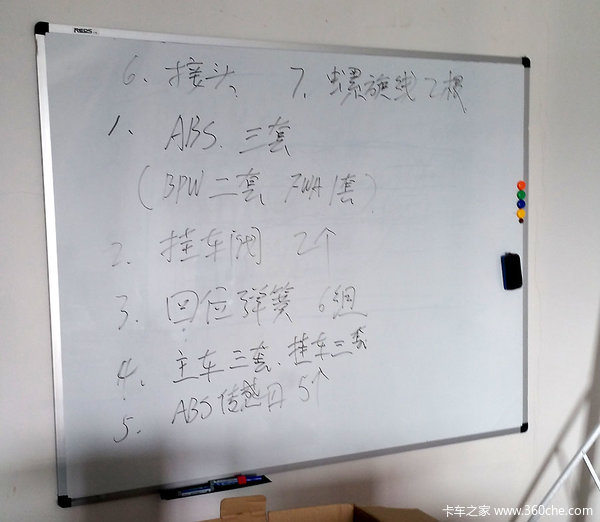 6、接头 7、螺旋线2根
1、ABS 三套
(BPW二套 FWA1套)
2、挂车阀 2个
3、回位弹簧 6组
4、主车三套、挂车三套
5、ABS传感 5个
卡车之家 www.360che.com